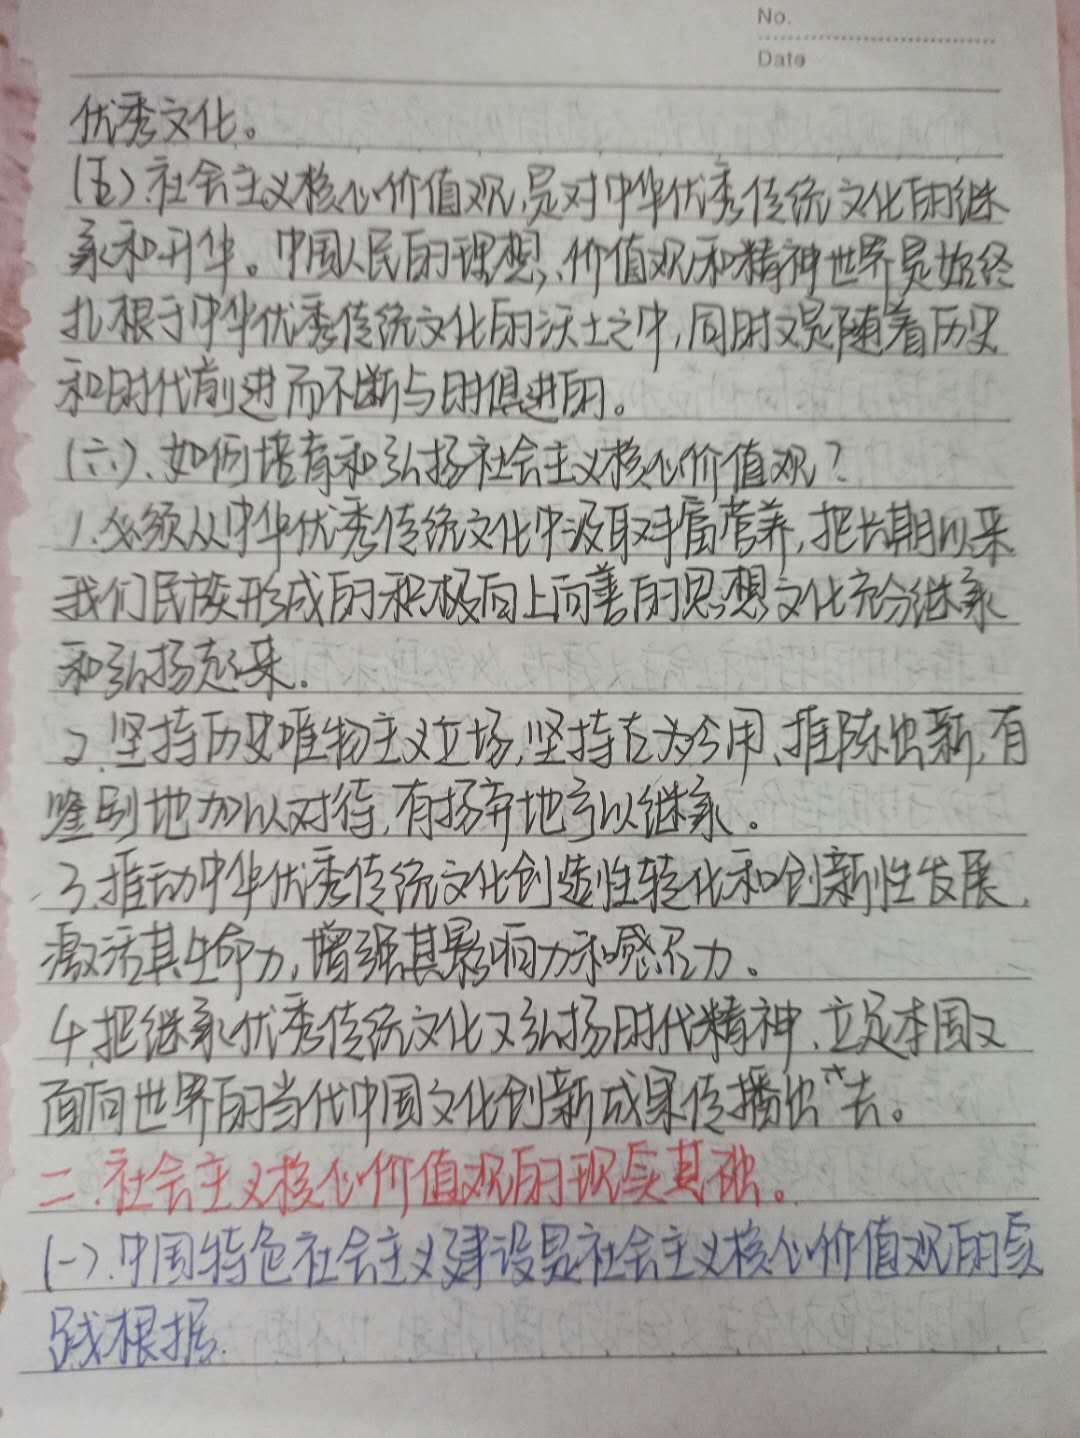 No.
Date
优秀文化。
(五).社会主义核心价值观,是对中华优秀传统文化的继
承和升华。中国人民的理想、价值观和精神世界是始终
扎根于中华优秀传统文化的沃土之中,同时又是随着历史
和时代前进而不断与时俱进的。
(六)、如何培育和弘扬社会主义核心价值观?
1.必须从中华优秀传统文化中汲取丰富营养,把长期以来
我们民族形成的积极向上向善的思想文化充分继承
和弘扬起来.
2.坚持历史唯物主义立场,坚持古为今用、推陈出新,有
鉴别地加以对待,有扬弃地予以继承。
3.推动中华优秀传统文化创造性转化和创新性发展,
激活其生命力,增强其影响力和感召力。
4.把继承优秀传统文化又弘扬时代精神、立足本国又
面向世界的当代中国文化创新成果传播出去。
二.社会主义核心价值观的现实基础。
(一).中国特色社会主义建设是社会主义核心价值观的实
践根据.